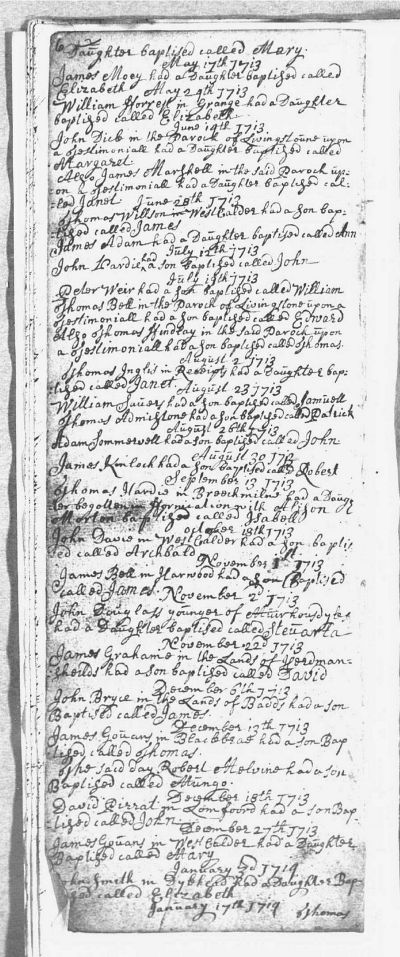 a Daughter baptised called Mary.
May 17th 1713
James Mooy had a Daughter baptised called
Elizabeth May 24th 1713
William Forrest in Grange had a Daughter
baptised called Elizabeth
June 14th 1713
John Dick in the Parock of Livingstoune upon
a testimoniall had a Daughter baptised called
Margaret
Also James Marshell in the said Parock up-
on a testimoniall had a Daughter baptised cal-
led Janet June 28th 1713
Thomas Willson in West Calder had a son bap-
tised called James
James Adam had a Daughter baptised called Ann
July 12th 1713
John Hardie had a son baptised called John
July 19th 1713
Peter Weir had a son baptised called William
Thomas Bell in the Parock of Livingstone upon a
testimoniall had a son baptised called Edward
Also Thomas Findlay in the said Parock upon
a testimoniall had a son baptised called Thomas.
August 2 1713
Thomas Inglis in had a Daughter bap-
tised called Janet August 23 1713
William had a son baptised called Samuell
Thomas Admistone had a son baptised called Patrick
August 26th 1713
Adam Sommervell had a son baptised called John
August 30 1713
James Kinloch had a son baptised called Robert
September 13 1713
Thomas Hardie in Breechmilne had a Daugh
ter begotten in fornication with Alison
Morton baptised called Isabell
october 18th 1713
John Davie in West Calder had a son baptis
ed called Archbald
November 1st 1713
James Bell in Harwood had a son Baptised
called James. November 2d 1713
John Douglass younger of
had a Daughter baptised called Steuarta
November 22d 1713
James Grahame in the Lands of Herdman-
sheilds had a son baptised called David
December 6th 1713
John Bryce in the Lands of Badds had a son
Baptised called James.
December 13th 1713
James Gowans in Blackbrae had a son Bap
tised called Thomas.
The said day Robert Melvine had a son
Baptised called Mungo.
December 18th 1713
David Pirrat in Lomfoord had a son Bap-
tised called John
December 27th 1713
James Gowans in West Calder had a Daughter
Baptised called Mary
January 3d 1714
John Smith in had a Daughter Bap
tised called Elizabeth
January 17th 1714
Thomas